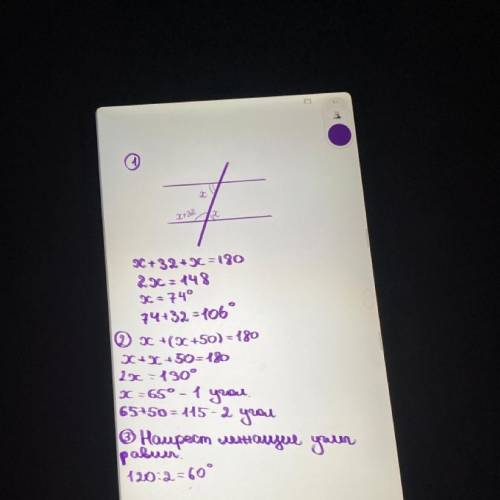 ①
x
x+32 x
x+32+x=180
2x=148
x=74°
74+32=106°
② x+(x+50)=180
x+x+50=180
2x=130°
x=65° - 1 угол.
65+50=115 - 2 угол
③ Накрест лежащие углы
равны.
120:2=60°